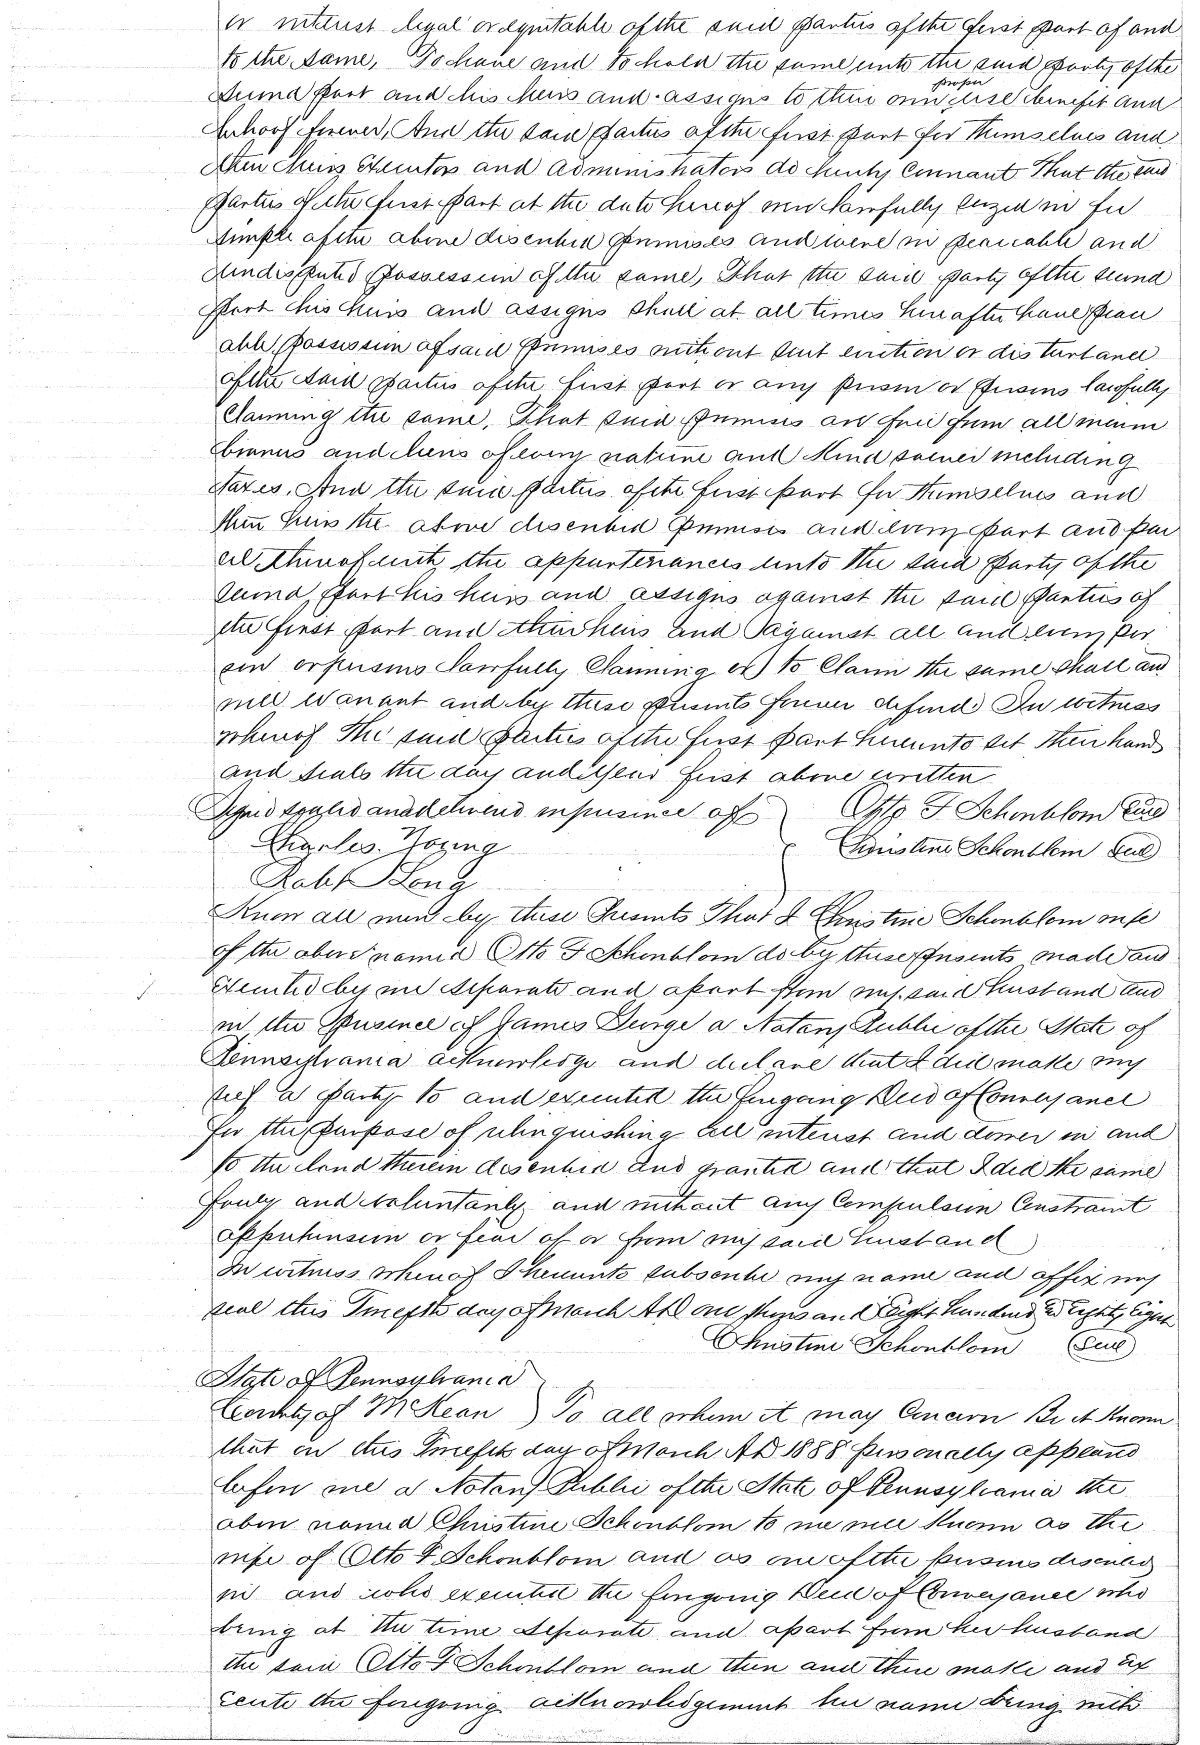 or interest legal or equitable of the said parties of the first part of and
to the same, To have and to hold the same unto the said party of the
proper
Second part and his heirs and assigns to their own use benefit and
behoof forever, And the said parties of the first part for themselves and
their heirs Executors and administrators do hereby Covenant That the said
parties of the first part at the date hereof were lawfully seized in fee
simple of the above described premises and were in peaceable and
undisputed possession of the same, That the said party of the second
part his heirs and assigns shall at all times hereafter have peace
able possession of said premises without suit eviction or disturbance
of the said parties of the first part or any person or persons lawfully
Claiming the same, That said premises are free from all incum
brances and liens of every nature and kind soever including
taxes, And the said parties of the first part for themselves and
their heirs the above described premises and every part and par
cel thereof with the appurtenances unto the said party of the
second part his heirs and assigns against the said parties of
the first part and their heirs and against all and every per
son or persons lawfully Claiming or to Claim the same shall and
will warrant and by these presents forever defend In witness
whereof The said parties of the first part hereunto set their hands
and seals the day and year first above written
Signed sealed and delivered in presence of Otto F Schonblom Seal
Charles. Young Christine Schonblom Seal
Robt Long
Know all men by these Presents That I Christine Schonblom wife
of the above named Otto F Schonblom do by these presents, made and
executed by me separate and apart from my said husband and
in the presence of James George a Notary Public of the State of
Pennsylvania acknowledge and declare that I did make my
self a party to and executed the foregoing Deed of Conveyance
for the purpose of relinquishing all interest and dower in and
to the land therein described and granted and that I did the same
freely and voluntarily and without any Compulsion Constraint
apprehension or fear of or from my said husband
In witness whereof I hereunto subscribe my name and affix my
seal this Twelfth day of March AD one thousand Eight hundred & Eighty Eight
Christine Schonblom Seal
State of Pennsylvania
County of McKean ) To all whom it may Concern Be it Known
that on this Twelfth day of March AD 1888 personally appeared
before me a Notary Public of the State of Pennsylvania the
above named Christine Schonblom to me well Known as the
wife of Otto F. Schonblom and as one of the persons described
in and who executed the foregoing Deed of Conveyance who
being at the time separate and apart from her husband
the said Otto F Schonblom and then and there make and ex
ecute the foregoing acknowledgement her name being with